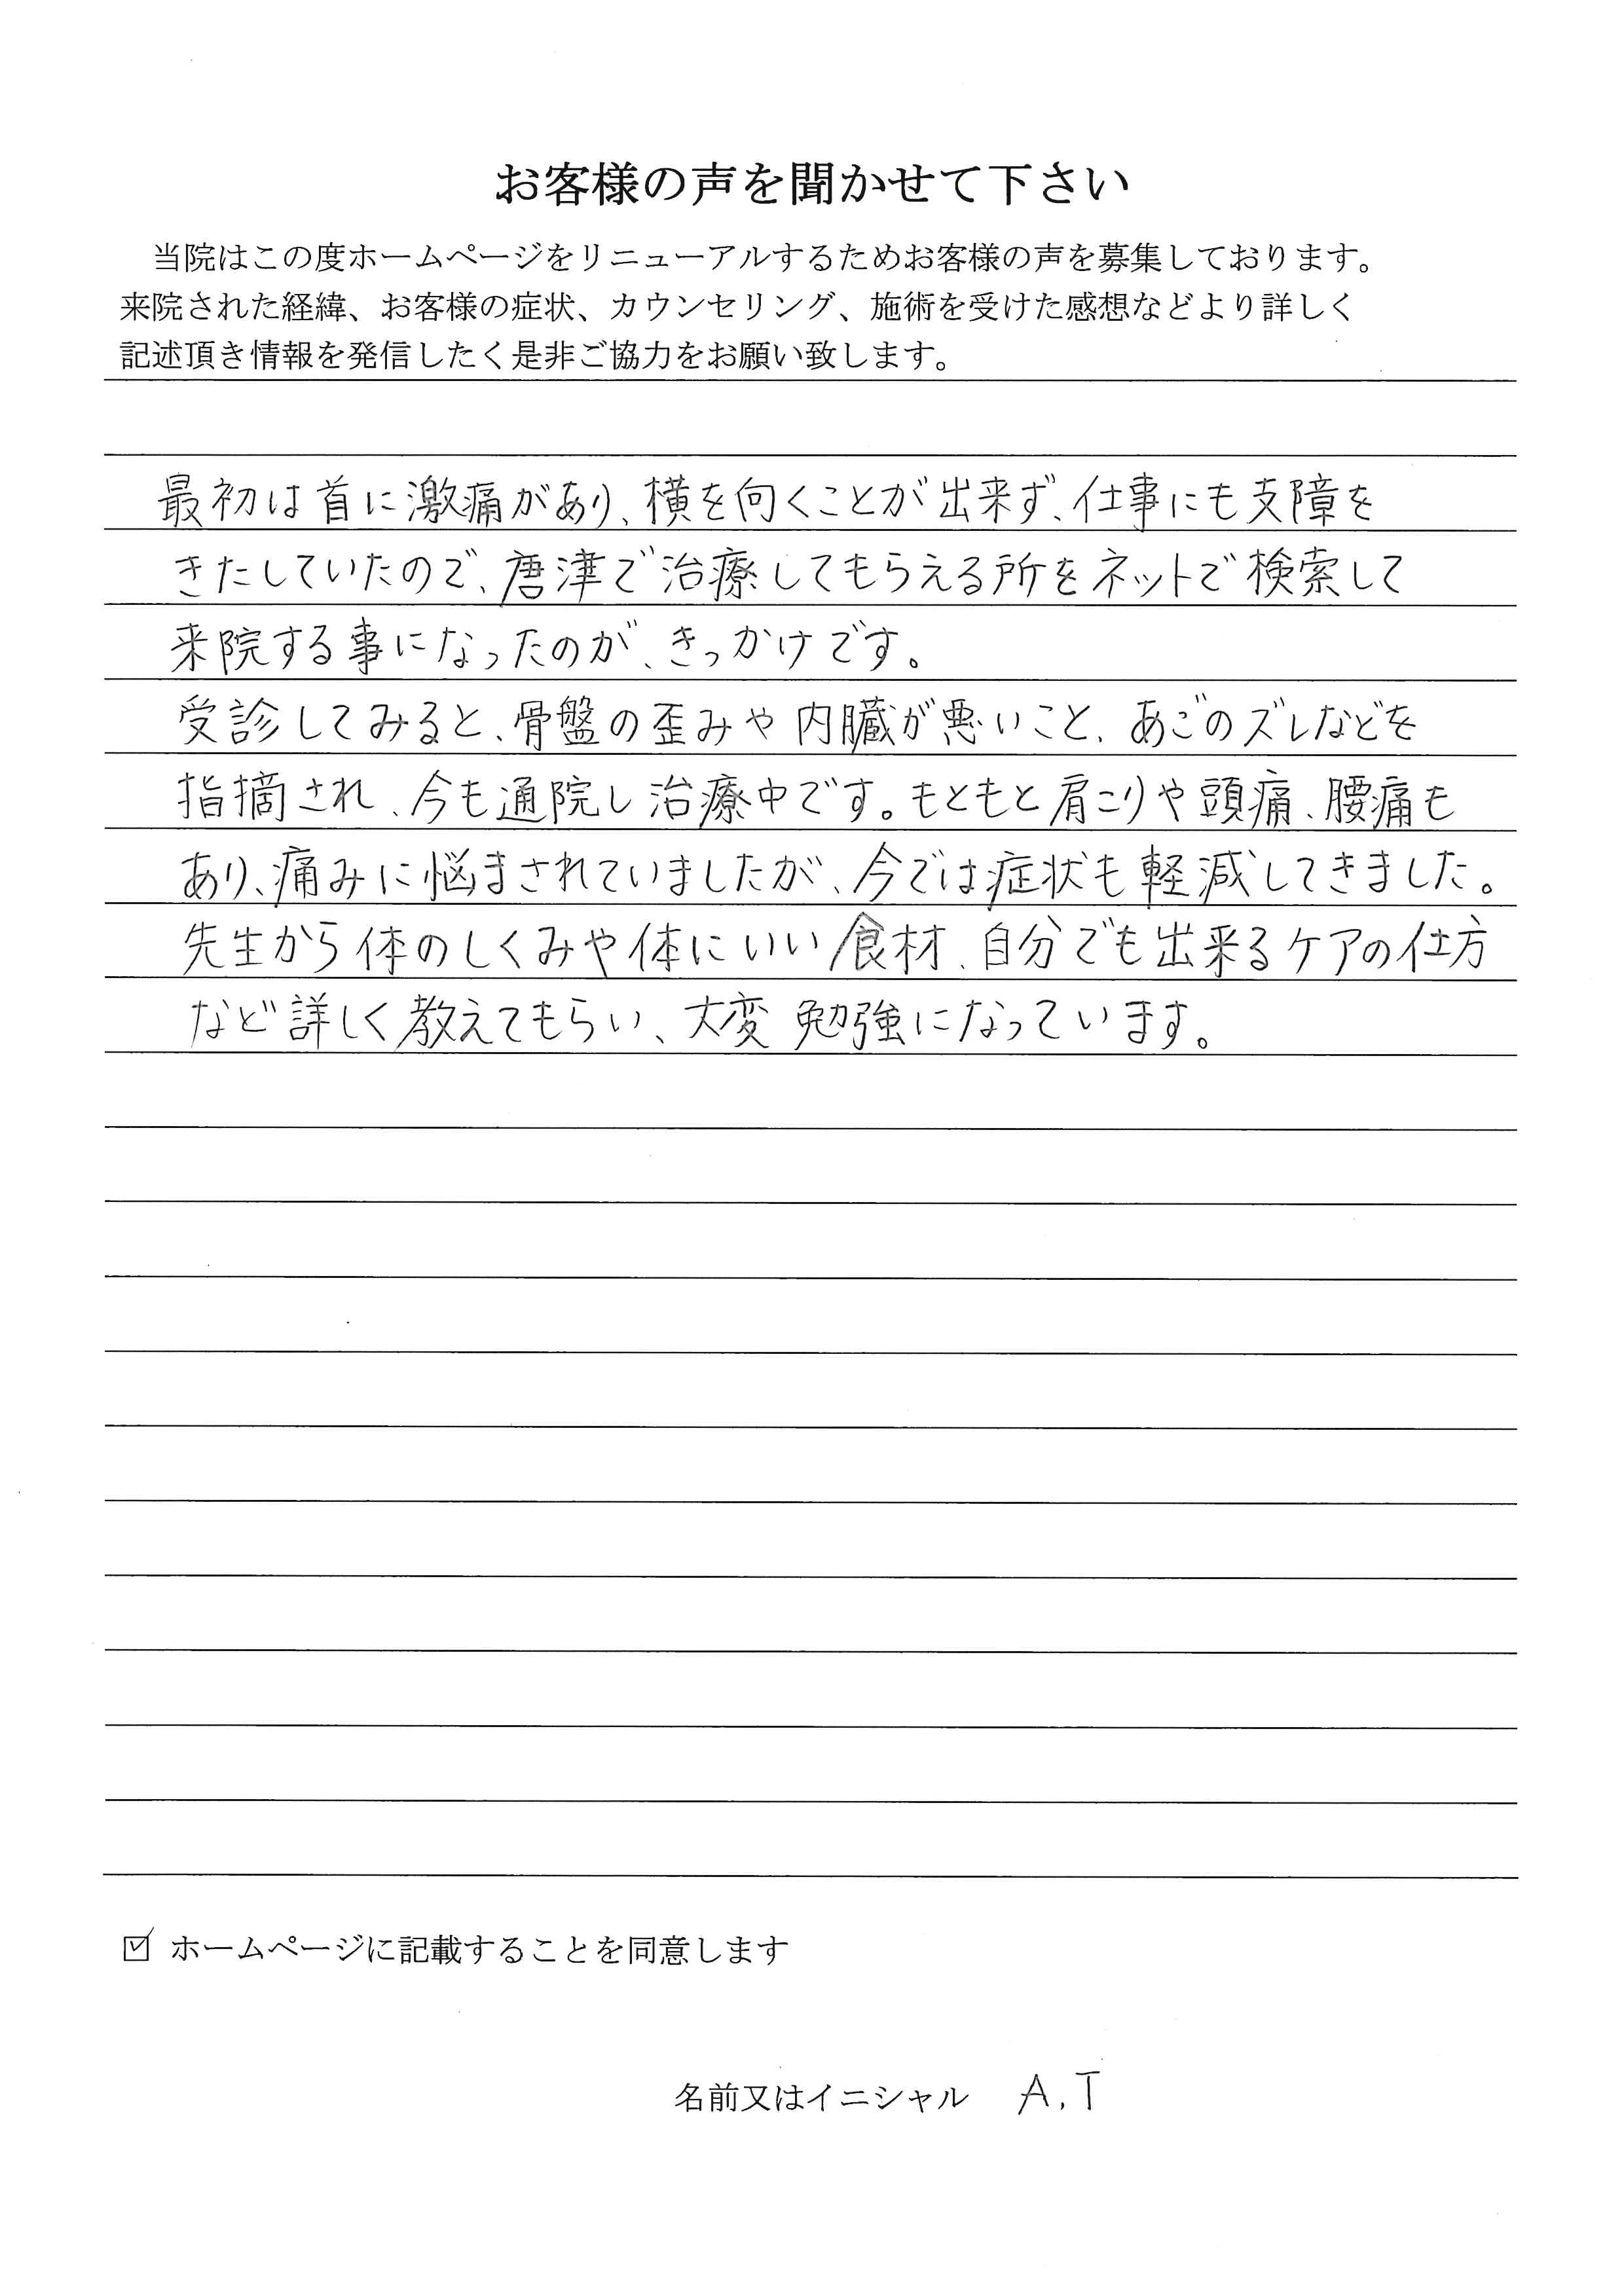 お客様の声を聞かせて下さい
当院はこの度ホームページをリニューアルするためお客様の声を募集しております。
来院された経緯、お客様の症状、カウンセリング、施術を受けた感想などより詳しく
記述頂き情報を発信したく是非ご協力をお願い致します。
最初は首に激痛があり、横を向くことが出来ず、仕事にも支障を
きたしていたので、唐津で治療してもらえる所をネットで検索して
来院する事になったのが、きっかけです。
受診してみると、骨盤の歪みや内臓が悪いこと、あごのズレなどを
指摘され、今も通院し治療中です。もともと肩こりや頭痛、腰痛も
あり、痛みに悩まされていましたが、今では症状も軽減してきました。
先生から体のしくみや体にいい食材、自分でも出来るケアの仕方
など詳しく教えてもらい、大変勉強になっています。
☑ ホームページに記載することを同意します
名前又はイニシャル A.T